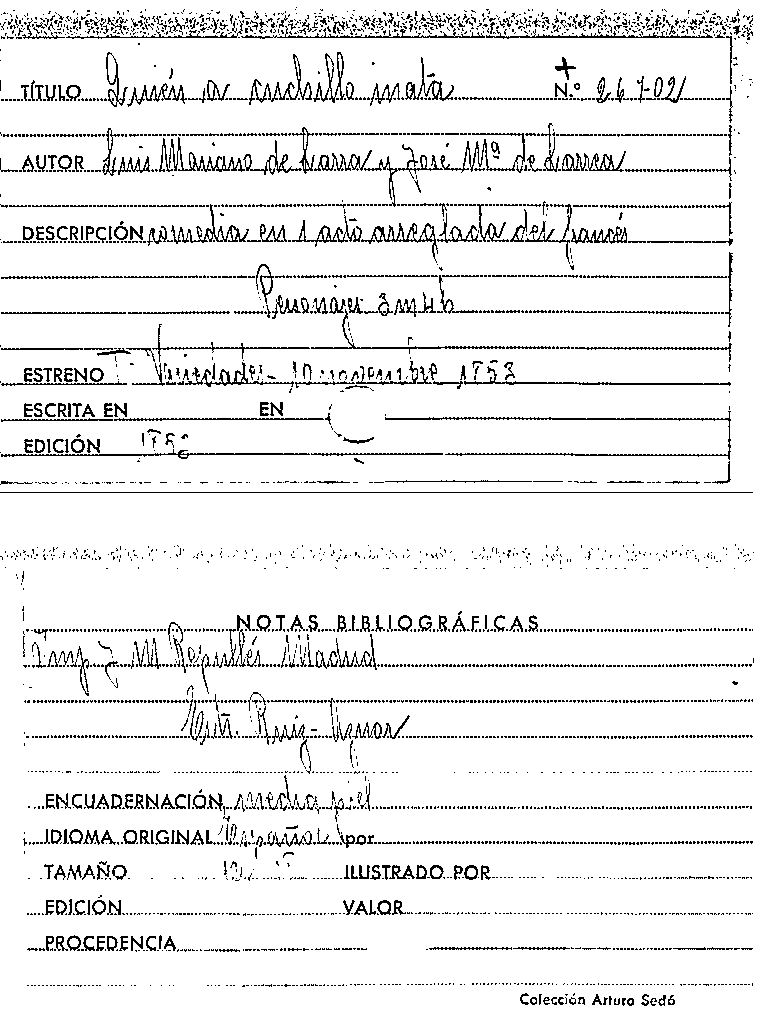 TÍTULO Quién a cuchillo mata + N.º 26702
AUTOR Luis Mariano de Larra y José Mª de Larrea
DESCRIPCIÓN comedia en 1 acto arreglada del francés
Personajes 3 m 4 h
ESTRENO T. Variedades - 10 noviembre 1853
ESCRITA EN EN
EDICIÓN 1853
NOTAS BIBLIOGRÁFICAS
Imp J M Repullés Madrid
Estr. Ruiz - Aznar
ENCUADERNACIÓN media piel
IDIOMA ORIGINAL Español por
TAMAÑO ILUSTRADO POR
EDICIÓN VALOR
PROCEDENCIA
Colección Arturo Sedó